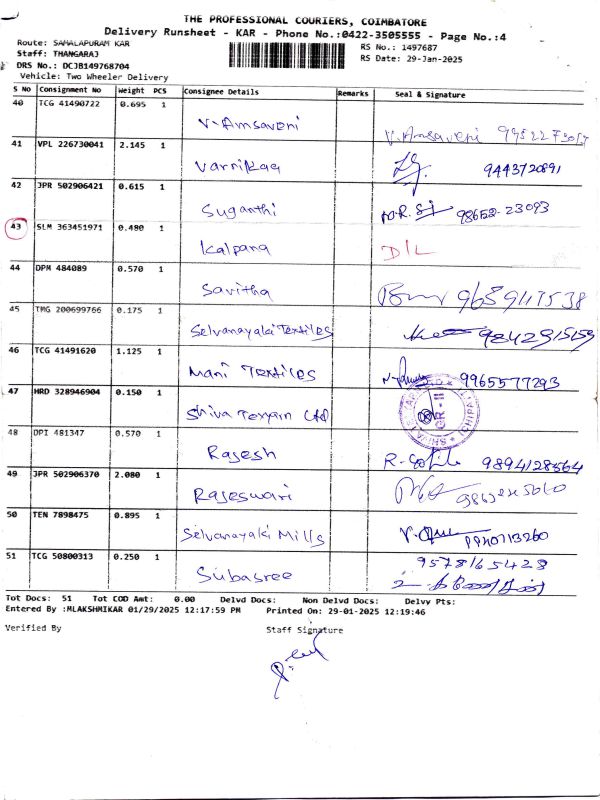 THE PROFESSIONAL COURIERS, COIMBATORE
Delivery Runsheet - KAR - Phone No.:0422-3505555 - Page No.:4
Route: SAMALAPURAM KAR
RS No.: 1497687
Staff: THANGARAJ
RS Date: 29-Jan-2025
DRS No.: DCJB149768704
Vehicle: Two Wheeler Delivery
S No Consignment No Weight PCS Consignee Details Remarks Seal & Signature
40 TCG 41490722 0.695 1 V. Amsaveni V. Amsaveni
41 VPL 226730041 2.145 1 Varnikaa 9443720891
42 JPR 502906421 0.615 1 Suganthi 98652-23093
43 SLM 363451971 0.480 1 Kalpana D/L
44 DPM 484089 0.570 1 Savitha
45 TMG 200699766 0.175 1 Selvanayaki Textiles 9842915159
46 TCG 41491620 1.125 1 Mani Textiles 9965577293
47 HRD 328946904 0.150 1 Shiva Texyarn Ltd
48 DPI 481347 0.570 1 Rajesh 9894128564
49 JPR 502906370 2.080 1 Rajeswari
50 TEN 7898475 0.895 1 Selvanayaki Mills
51 TCG 50800313 0.250 1 Subasree 9578165428
Tot Docs: 51 Tot COD Amt: 0.00 Delvd Docs: Non Delvd Docs: Delvy Pts:
Entered By :MLAKSHMIKAR 01/29/2025 12:17:59 PM Printed On: 29-01-2025 12:19:46
Verified By Staff Signature